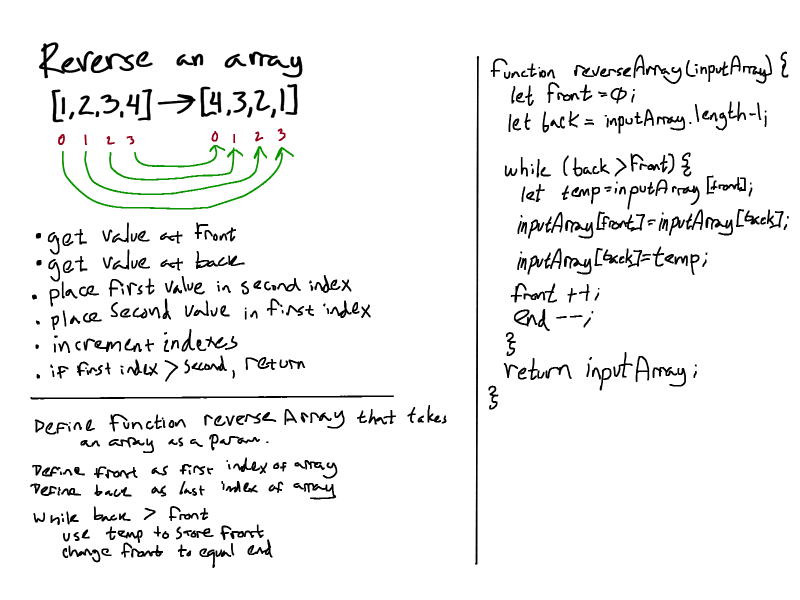 Reverse an array
[1,2,3,4] → [4,3,2,1]
0 1 2 3 0 1 2 3
• get value at front
• get value at back
• place first value in second index
• place second value in first index
• increment indexes
• if first index > second, return
Define function reverseArray that takes
an array as a param.
Define front as first index of array
Define back as last index of array
While back > front
use temp to store front
change front to equal end
function reverseArray(inputArray) {
let front = 0;
let back = inputArray.length-1;
while (back > front) {
let temp = inputArray[front];
inputArray[front] = inputArray[back];
inputArray[back] = temp;
front ++;
end --;
}
return inputArray;
}